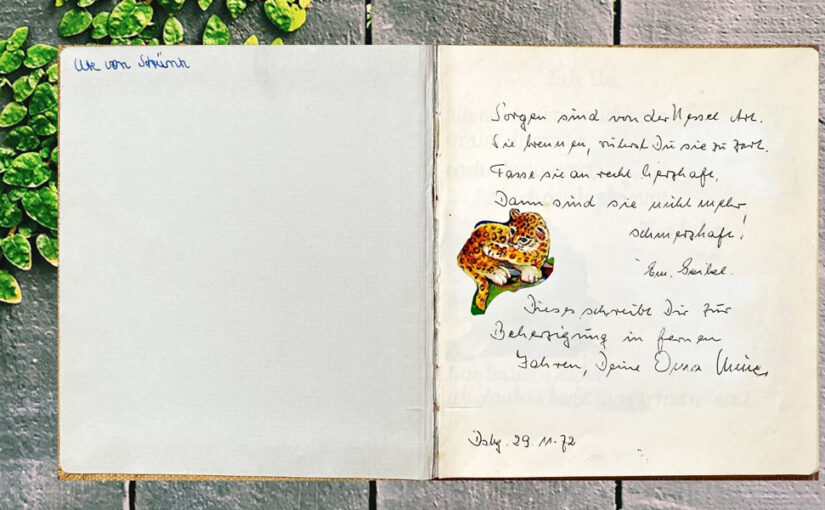 Ute von
Sorgen sind von der Nessel Art.
Sie brennen, rührst Du sie zu zart.
Fasse sie an recht herzhaft,
Dann sind sie nicht mehr
schmerzhaft!
Em. Geibel.
Dieses schreibt Dir zur
Beherzigung in fernen
Jahren, Deine Oma
Dsbg. 29.11.72